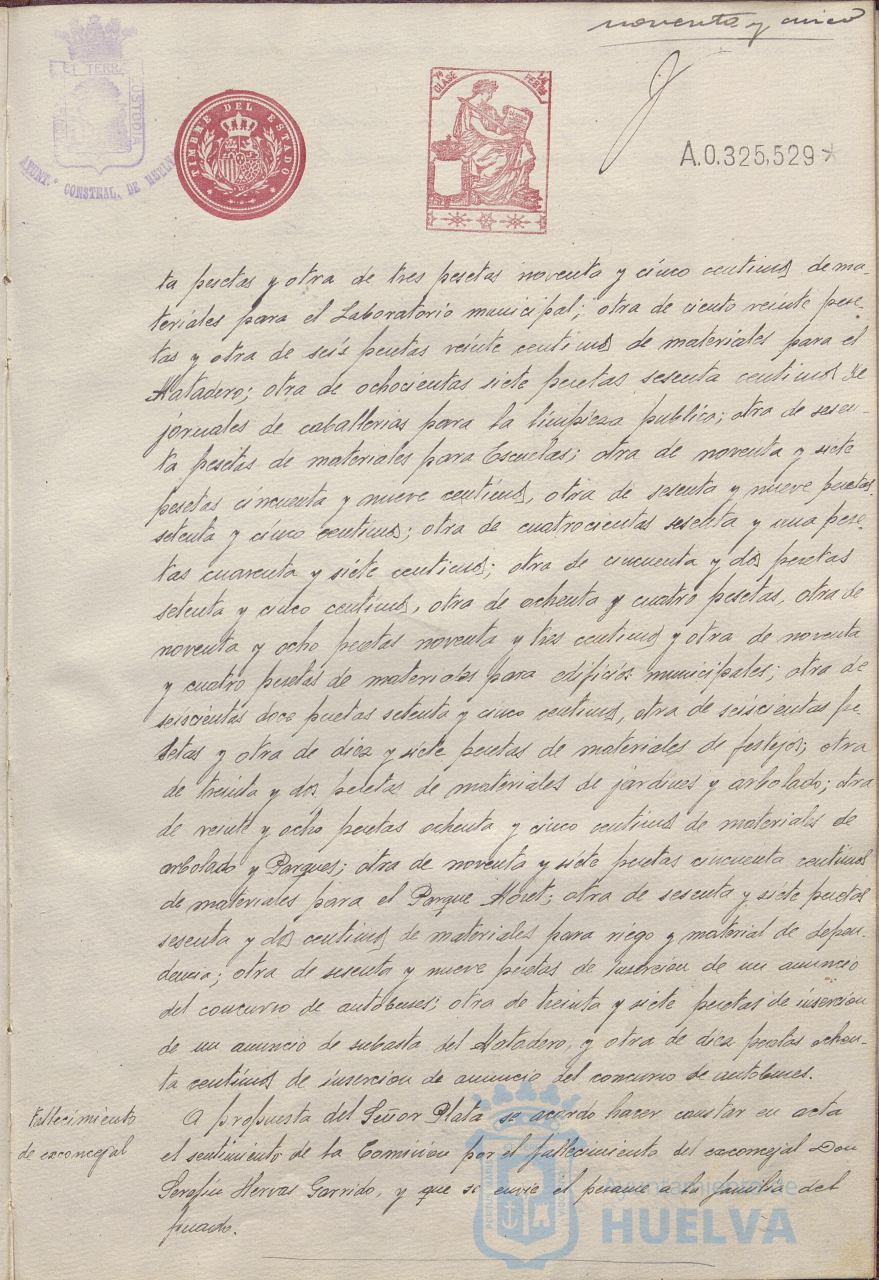 noventa y cinco
TIMBRE DEL ESTADO
7ª CLASE
A.0.325,529
AYUNT.º CONSTNAL. DE
ta pesetas y otra de tres pesetas noventa y cinco centimos de ma-
teriales para el Laboratorio municipal; otra de ciento veinte pese-
tas y otra de seis pesetas veinte centimos de materiales para el
Matadero; otra de ochocientas siete pesetas sesenta centimos de
jornales de caballerias para la limpieza publica; otra de sesen-
ta pesetas de materiales para Escuelas; otra de noventa y siete
pesetas cincuenta y nueve centimos, otra de sesenta y nueve pesetas
setenta y cinco centimos; otra de cuatrocientas sesenta y una pese-
tas cuarenta y siete centimos; otra de cincuenta y dos pesetas
setenta y cinco centimos, otra de ochenta y cuatro pesetas, otra de
noventa y ocho pesetas noventa y tres centimos y otra de noventa
y cuatro pesetas de materiales para edificios municipales; otra de
seiscientas doce pesetas setenta y cinco centimos, otra de seiscientas pe-
setas y otra de diez y siete pesetas de materiales de festejos; otra
de treinta y dos pesetas de materiales de jardines y arbolado; otra
de veinte y ocho pesetas ochenta y cinco centimos de materiales de
arbolado y Parques; otra de noventa y siete pesetas cincuenta centimos
de materiales para el Parque Moret; otra de sesenta y siete pesetas
sesenta y dos centimos de materiales para riego y material de depen-
dencia; otra de sesenta y nueve pesetas de insercion de un anuncio
del concurso de autobuses; otra de treinta y siete pesetas de insercion
de un anuncio de subasta del Matadero, y otra de diez pesetas ochen-
ta centimos de insercion de anuncio del concurso de autobuses.
Fallecimiento
de exconcejal
A propuesta del Señor Plata se acordo hacer constar en acta
el sentimiento de la Comision por el fallecimiento del exconcejal Don
Serafin Hervas Garrido, y que se envie el pesame a la familia del
finado.
Ayuntamiento de
HUELVA